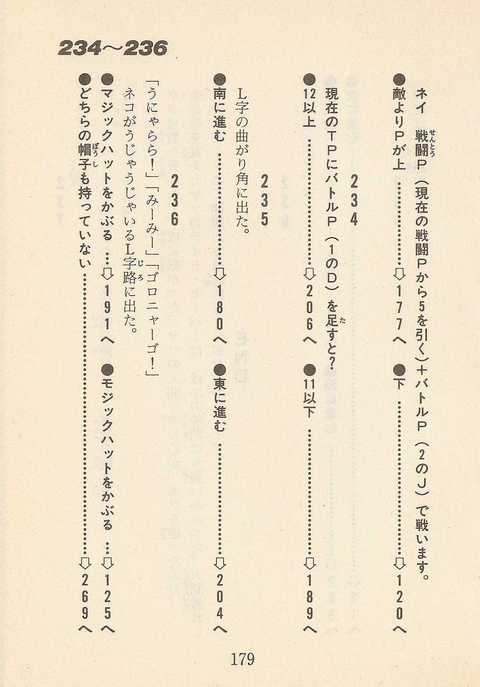 234〜236
ネイ 戦闘P(現在の戦闘Pから5を引く)+バトルP(2のJ)で戦います。
●敵よりPが上……⇩177へ ●下……⇩120へ
234
現在のTPにバトルP(1のD)を足すと?
●12以上……⇩206へ ●11以下……⇩189へ
235
L字の曲がり角に出た。
●南に進む……⇩180へ ●東に進む……⇩204へ
236
「うにゃらら!」「みーみー」「ゴロニャーゴ!」
ネコがうじゃうじゃいるL字路に出た。
●マジックハットをかぶる…⇩191へ ●モジックハットをかぶる…⇩125へ
●どちらの帽子も持っていない……⇩269へ
179